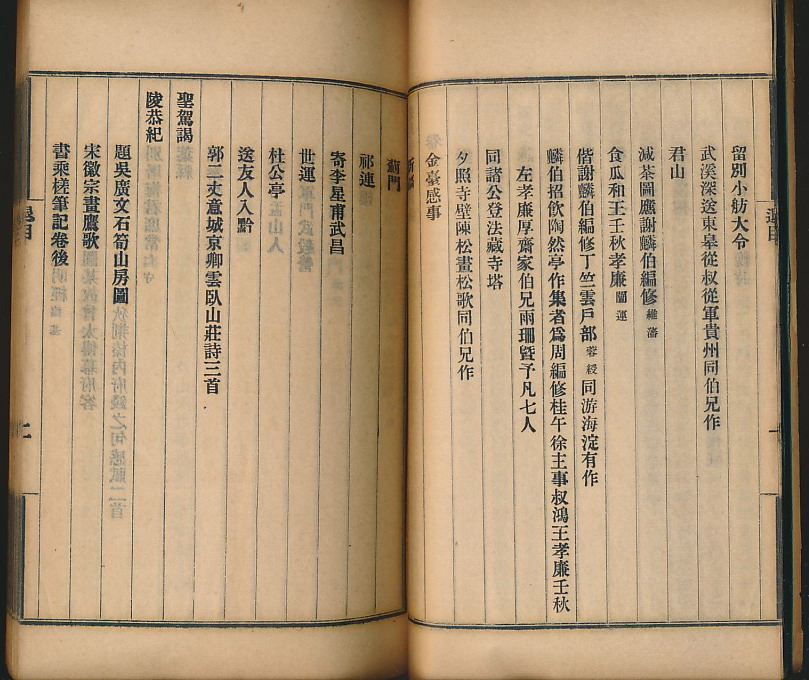 留別小舫大令
武溪深送東皋從叔從軍貴州同伯兄作
君山
減茶圖應謝麟伯編修維藩
食瓜和王壬秋孝廉闓運
偕謝麟伯編修丁竺雲戶部蓉綬同游海淀有作
麟伯招飲陶然亭作集者為周編修桂午徐主事叔鴻王孝廉壬秋
左孝廉厚齋家伯兄雨珊暨予凡七人
同諸公登法藏寺塔
夕照寺壁陳松畫松歌同伯兄作
金臺感事
薊門
祁連
寄李星甫武昌
世運
杜公亭
送友人入黔
郭二丈意城京卿雲臥山莊詩三首
聖駕謁
陵恭紀
題吳廣文石筍山房圖
宋徽宗畫鷹歌
書乘槎筆記卷後
二